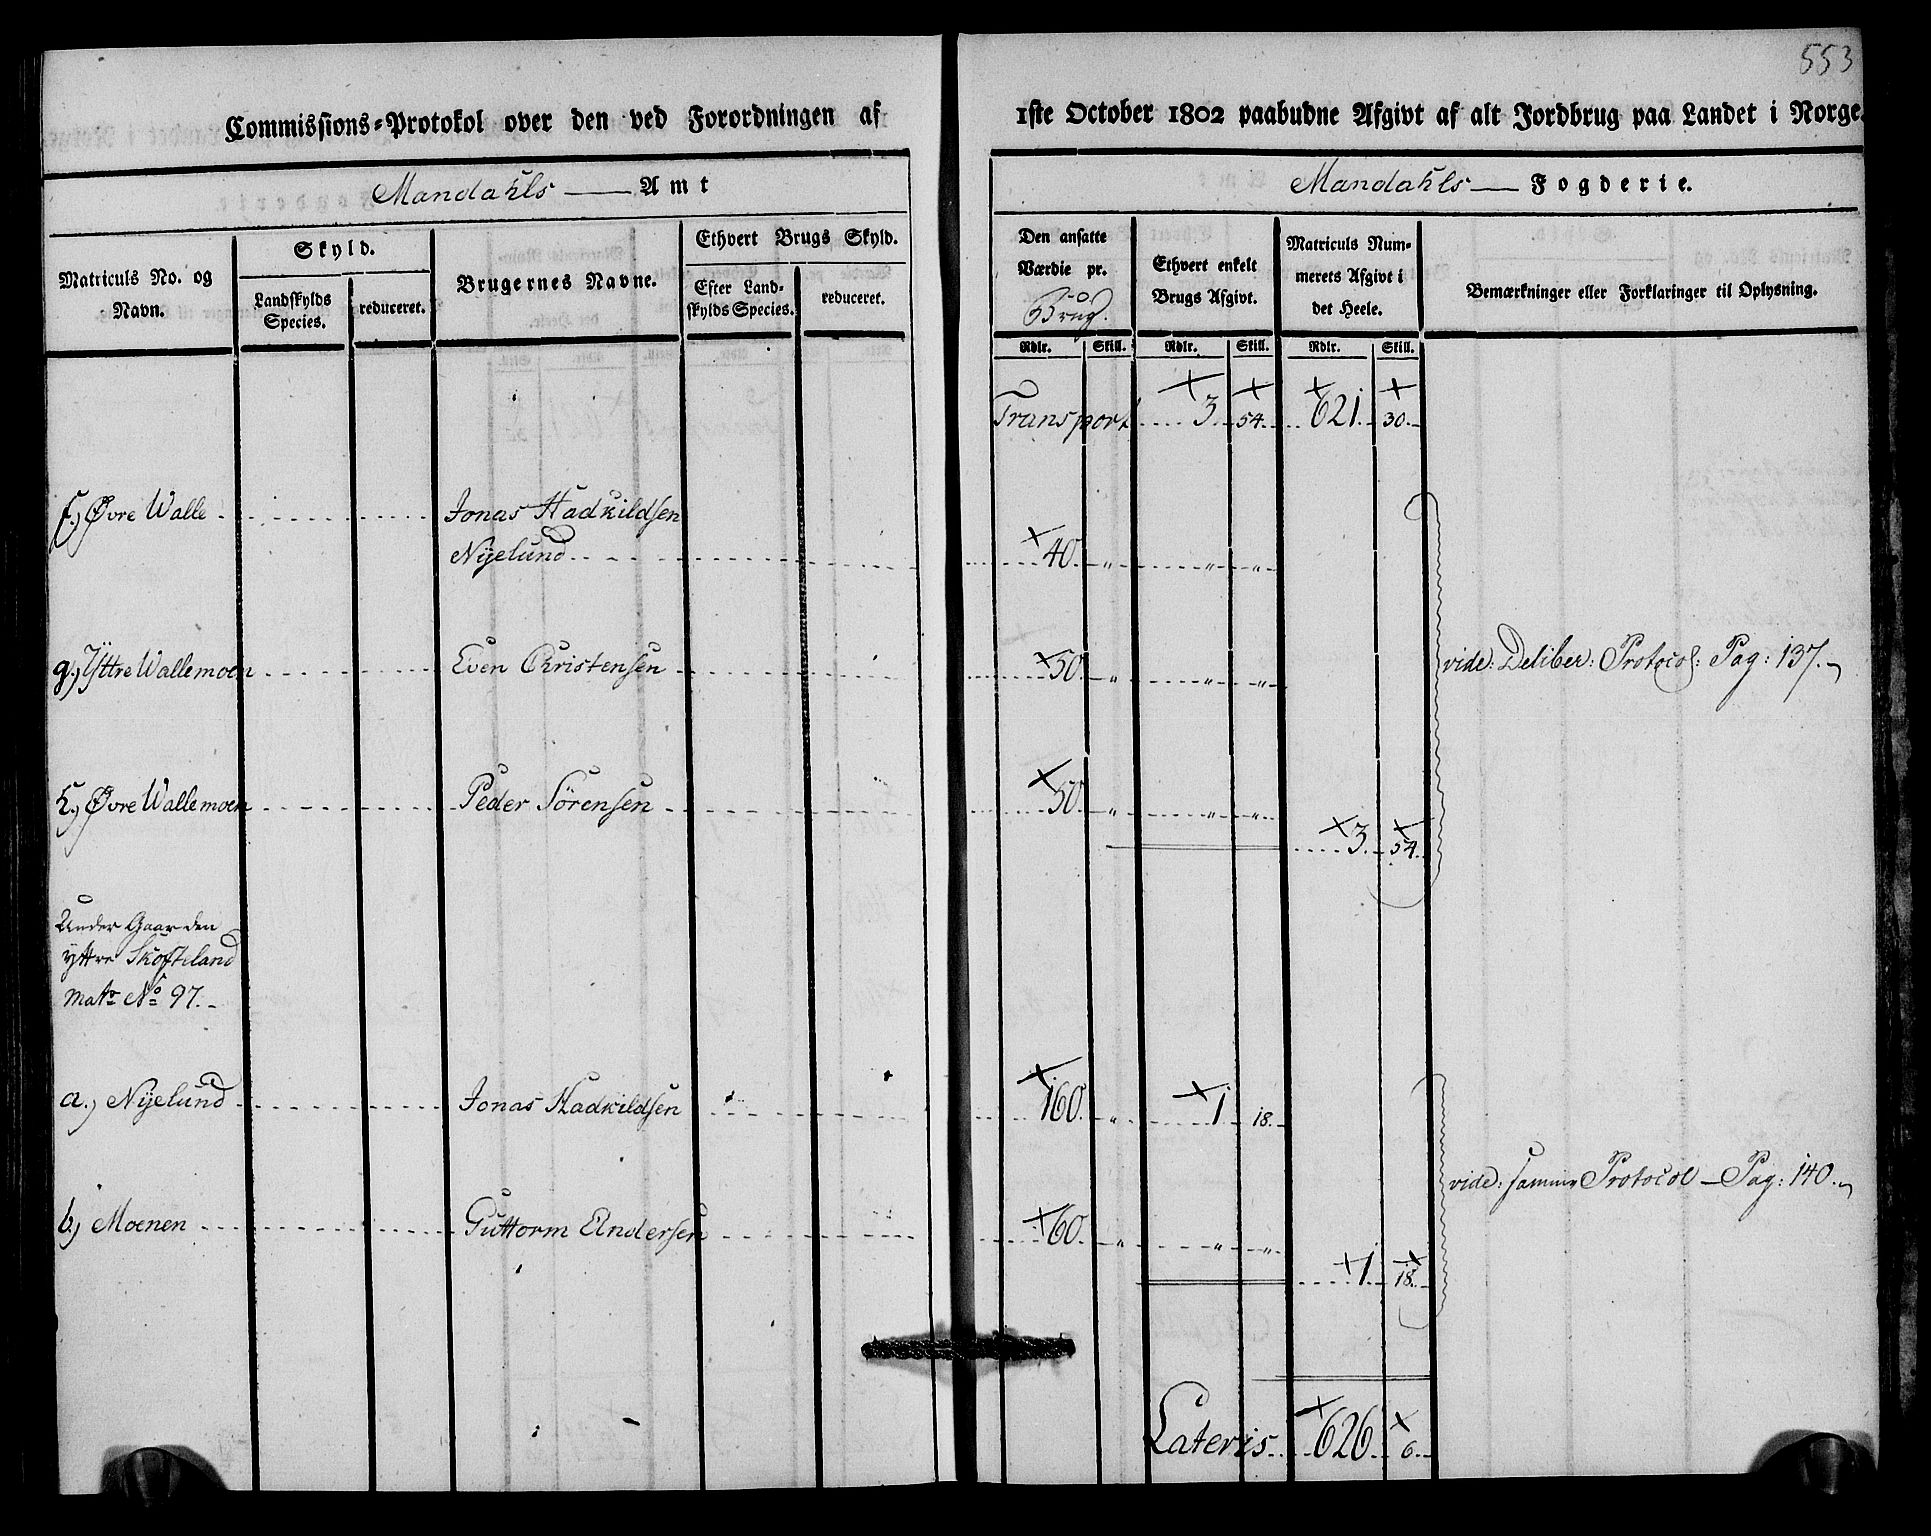 553
Commissions-Protokol over den ved Forordningen af 1ste October 1802 paabudne Afgivt af alt Jordbrug paa Landet i Norge.
Mandahls Amt
Mandahls Fogderie.
Matriculs No. og Navn.
Skyld.
Landskylds Species.
reduceret.
Brugernes Navne.
Ethvert Brugs Skyld.
Efter Landskylds Species.
reduceret.
Den ansatte Værdie pr. Brug.
Ethvert enkelt Brugs Afgivt.
Matriculs Nummerets Afgivt i det Heele.
Bemærkninger eller Forklaringer til Oplysning.
Rdlr. Skill. Rdlr. Skill. Rdlr. Skill.
Transport 3 54. 621. 30.
f.) Øvre Walle Jonas Hadkildsen
Nyelund 40. " " "
g.) Yttre Wallemoen Even Christensen 50. " " " vide: Deliber: Protocol: Pag: 137.
h.) Øvre Wallemoen Peder Sörensen 50. " " "
3. 54.
Under Gaarden
yttre Skofteland
Matr No 97.
a.) Nyelund Jonas Hadkildsen 160. " 1 18.
vide: samme Protocol - Pag: 140.
b.) Moenen Guttorm Andersen 60. " " "
1. 18.
Lateris 626. 6.